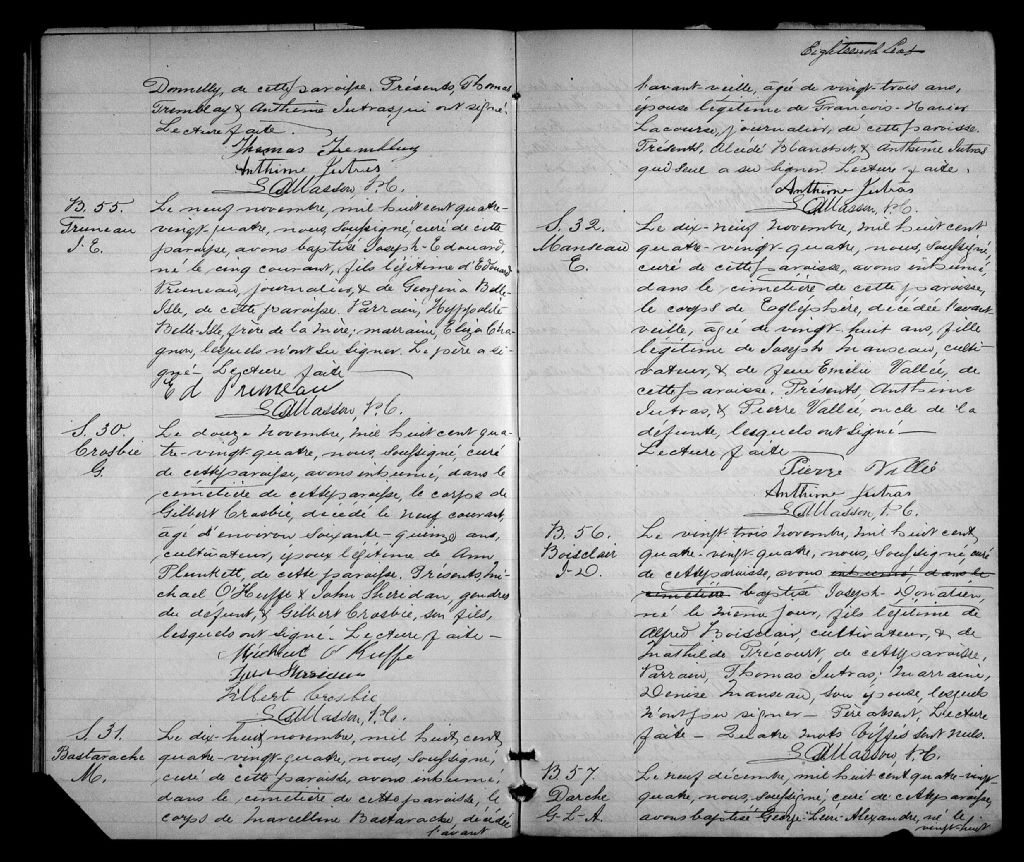 Donnelly, de cette paroisse. Présents, Thomas
Tremblay & Anthime Jutras, qui ont signé.
Lecture faite.
Thomas Tremblay
Anthime Jutras
Masson, P.C.
B. 55.
Pruneau
J. E.
Le neuf novembre, mil huit cent quatre-
vingt-quatre, nous, soussigné, curé de cette
paroisse, avons baptisé Joseph-Edouard,
né le cinq courant, fils légitime d'Edouard
Pruneau, journalier, & de Georgina Belle-
Isle, de cette paroisse. Parrain, Hyppolite
Belle-Isle, frère de la mère; marraine, Eliza Cha-
gnon, lesquels n'ont su signer. Le père a si-
gné. Lecture faite
Ed Pruneau
Masson, P.C.
S. 30.
Crosbie
G.
Le douze novembre, mil huit cent qua-
tre-vingt-quatre, nous, soussigné, curé
de cette paroisse, avons inhumé, dans le
cimetière de cette paroisse, le corps de
Gilbert Crosbie, décédé le neuf courant,
âgé d'environ soixante-quinze ans,
cultivateur, époux légitime de Ann
Plunkett, de cette paroisse. Présents, Mi-
chael O'Keeffe & John Sheridan, gendres
du défunt, & Gilbert Crosbie, son fils,
lesquels ont signé. Lecture faite
Michael O Keeffe
Gilbert Crosbie
Masson, P.C.
S. 31.
Bastarache
M.
Le dix-huit novembre, mil huit cent
quatre-vingt-quatre, nous, soussigné,
curé de cette paroisse, avons inhumé,
dans le cimetière de cette paroisse, le
corps de Marcelline Bastarache, décédée
l'avant
Eighteenth leaf
l'avant-veille, âgée de vingt-trois ans,
épouse légitime de François-Xavier
Lacourse, journalier, de cette paroisse.
Présents, Alcide Blanchet, & Anthime Jutras
qui seul a su signer. Lecture faite.
Anthime Jutras
Masson, P.C.
S. 32.
Manseau
E.
Le dix-neuf novembre, mil huit cent
quatre-vingt-quatre, nous, soussigné,
curé de cette paroisse, avons inhumé,
dans le cimetière de cette paroisse,
le corps de décédée l'avant
veille, âgée de vingt-huit ans, fille
légitime de Joseph Manseau, culti-
vateur, & de feue Emélie Vallée, de
cette paroisse. Présents, Anthime
Jutras, & Pierre Vallée, oncle de la
défunte, lesquels ont signé
Lecture faite
Pierre Vallée
Anthime Jutras
Masson, P.C.
B. 56.
Boisclair
J-D.
Le vingt-trois novembre, mil huit cent
quatre-vingt-quatre, nous, soussigné, curé
de cette paroisse, avons inhumé, dans le
cimetière baptisé Joseph-Donatien,
né le même jour, fils légitime de
Alfred Boisclair, cultivateur, & de
Mathilde Précourt, de cette paroisse.
Parrain, Thomas Jutras; marraine,
Denise Manseau, son épouse, lesquels
n'ont pu signer. Père absent. Lecture
faite. Quatre mots biffés sont nuls.
Masson, P.C.
B. 57.
Darche
G-L-A.
Le neuf décembre, mil huit cent quatre-vingt-
quatre, nous, soussigné, curé de cette paroisse,
avons baptisé George-Levi-Alexandre, né le
vingt-huit